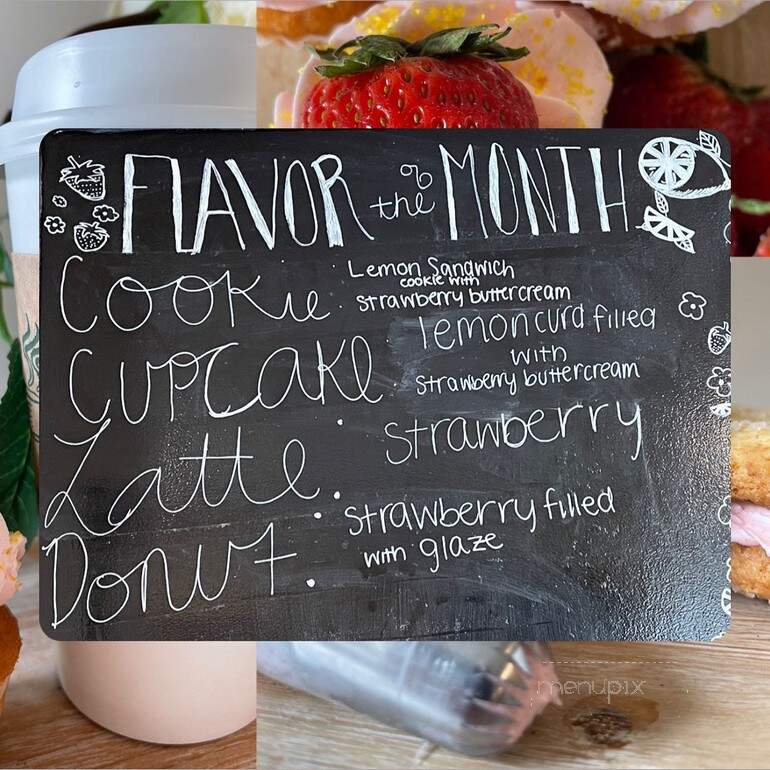 FLAVOR of the MONTH
Cookie: Lemon Sandwich
cookie with
strawberry buttercream
Cupcake: lemon curd filled
with
strawberry buttercream
Latte: strawberry
Donut: strawberry filled
with glaze
menupix